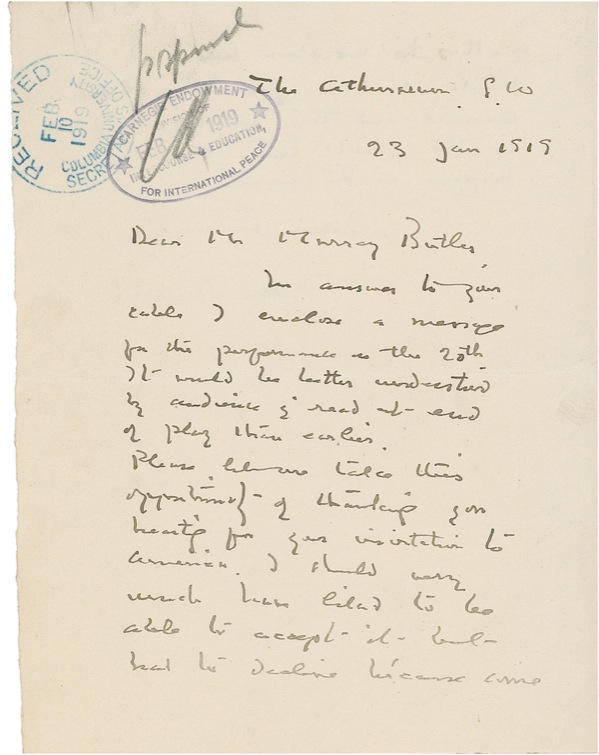 RECEIVED
FEB.
10
1919
COLUMBIA UNIVERSITY
SECRETARY'S OFFICE
CARNEGIE ENDOWMENT
DIVISION OF
FEB 1919
INTERCOURSE & EDUCATION,
FOR INTERNATIONAL PEACE
The Athenaeum. S.W
23 Jan 1919
Dear Mr Murray Butler
In answer to your
cable I enclose a message
for the performance on the 20th
It would be better understood
by audience if read at end
of play than earlier.
Please let me take this
opportunity of thanking you
heartily for your invitation to
America. I should very
much have liked to be
able to accept it but
had to decline because some